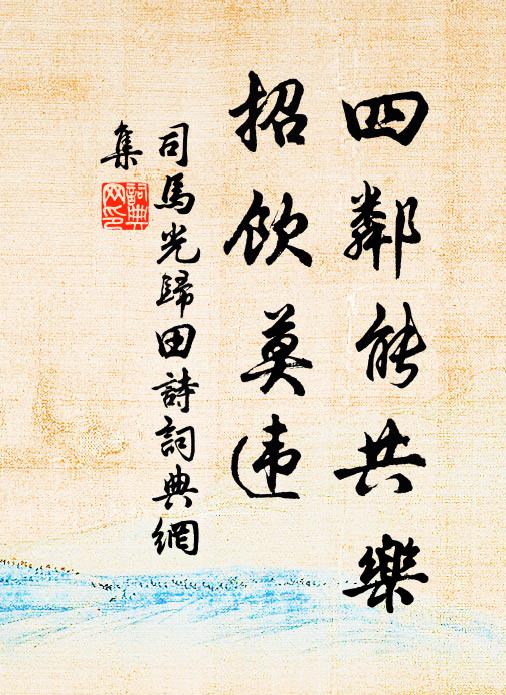 四鄰能共樂
招飲莫违
司馬光歸田詩詞典網
集
詞典
网印